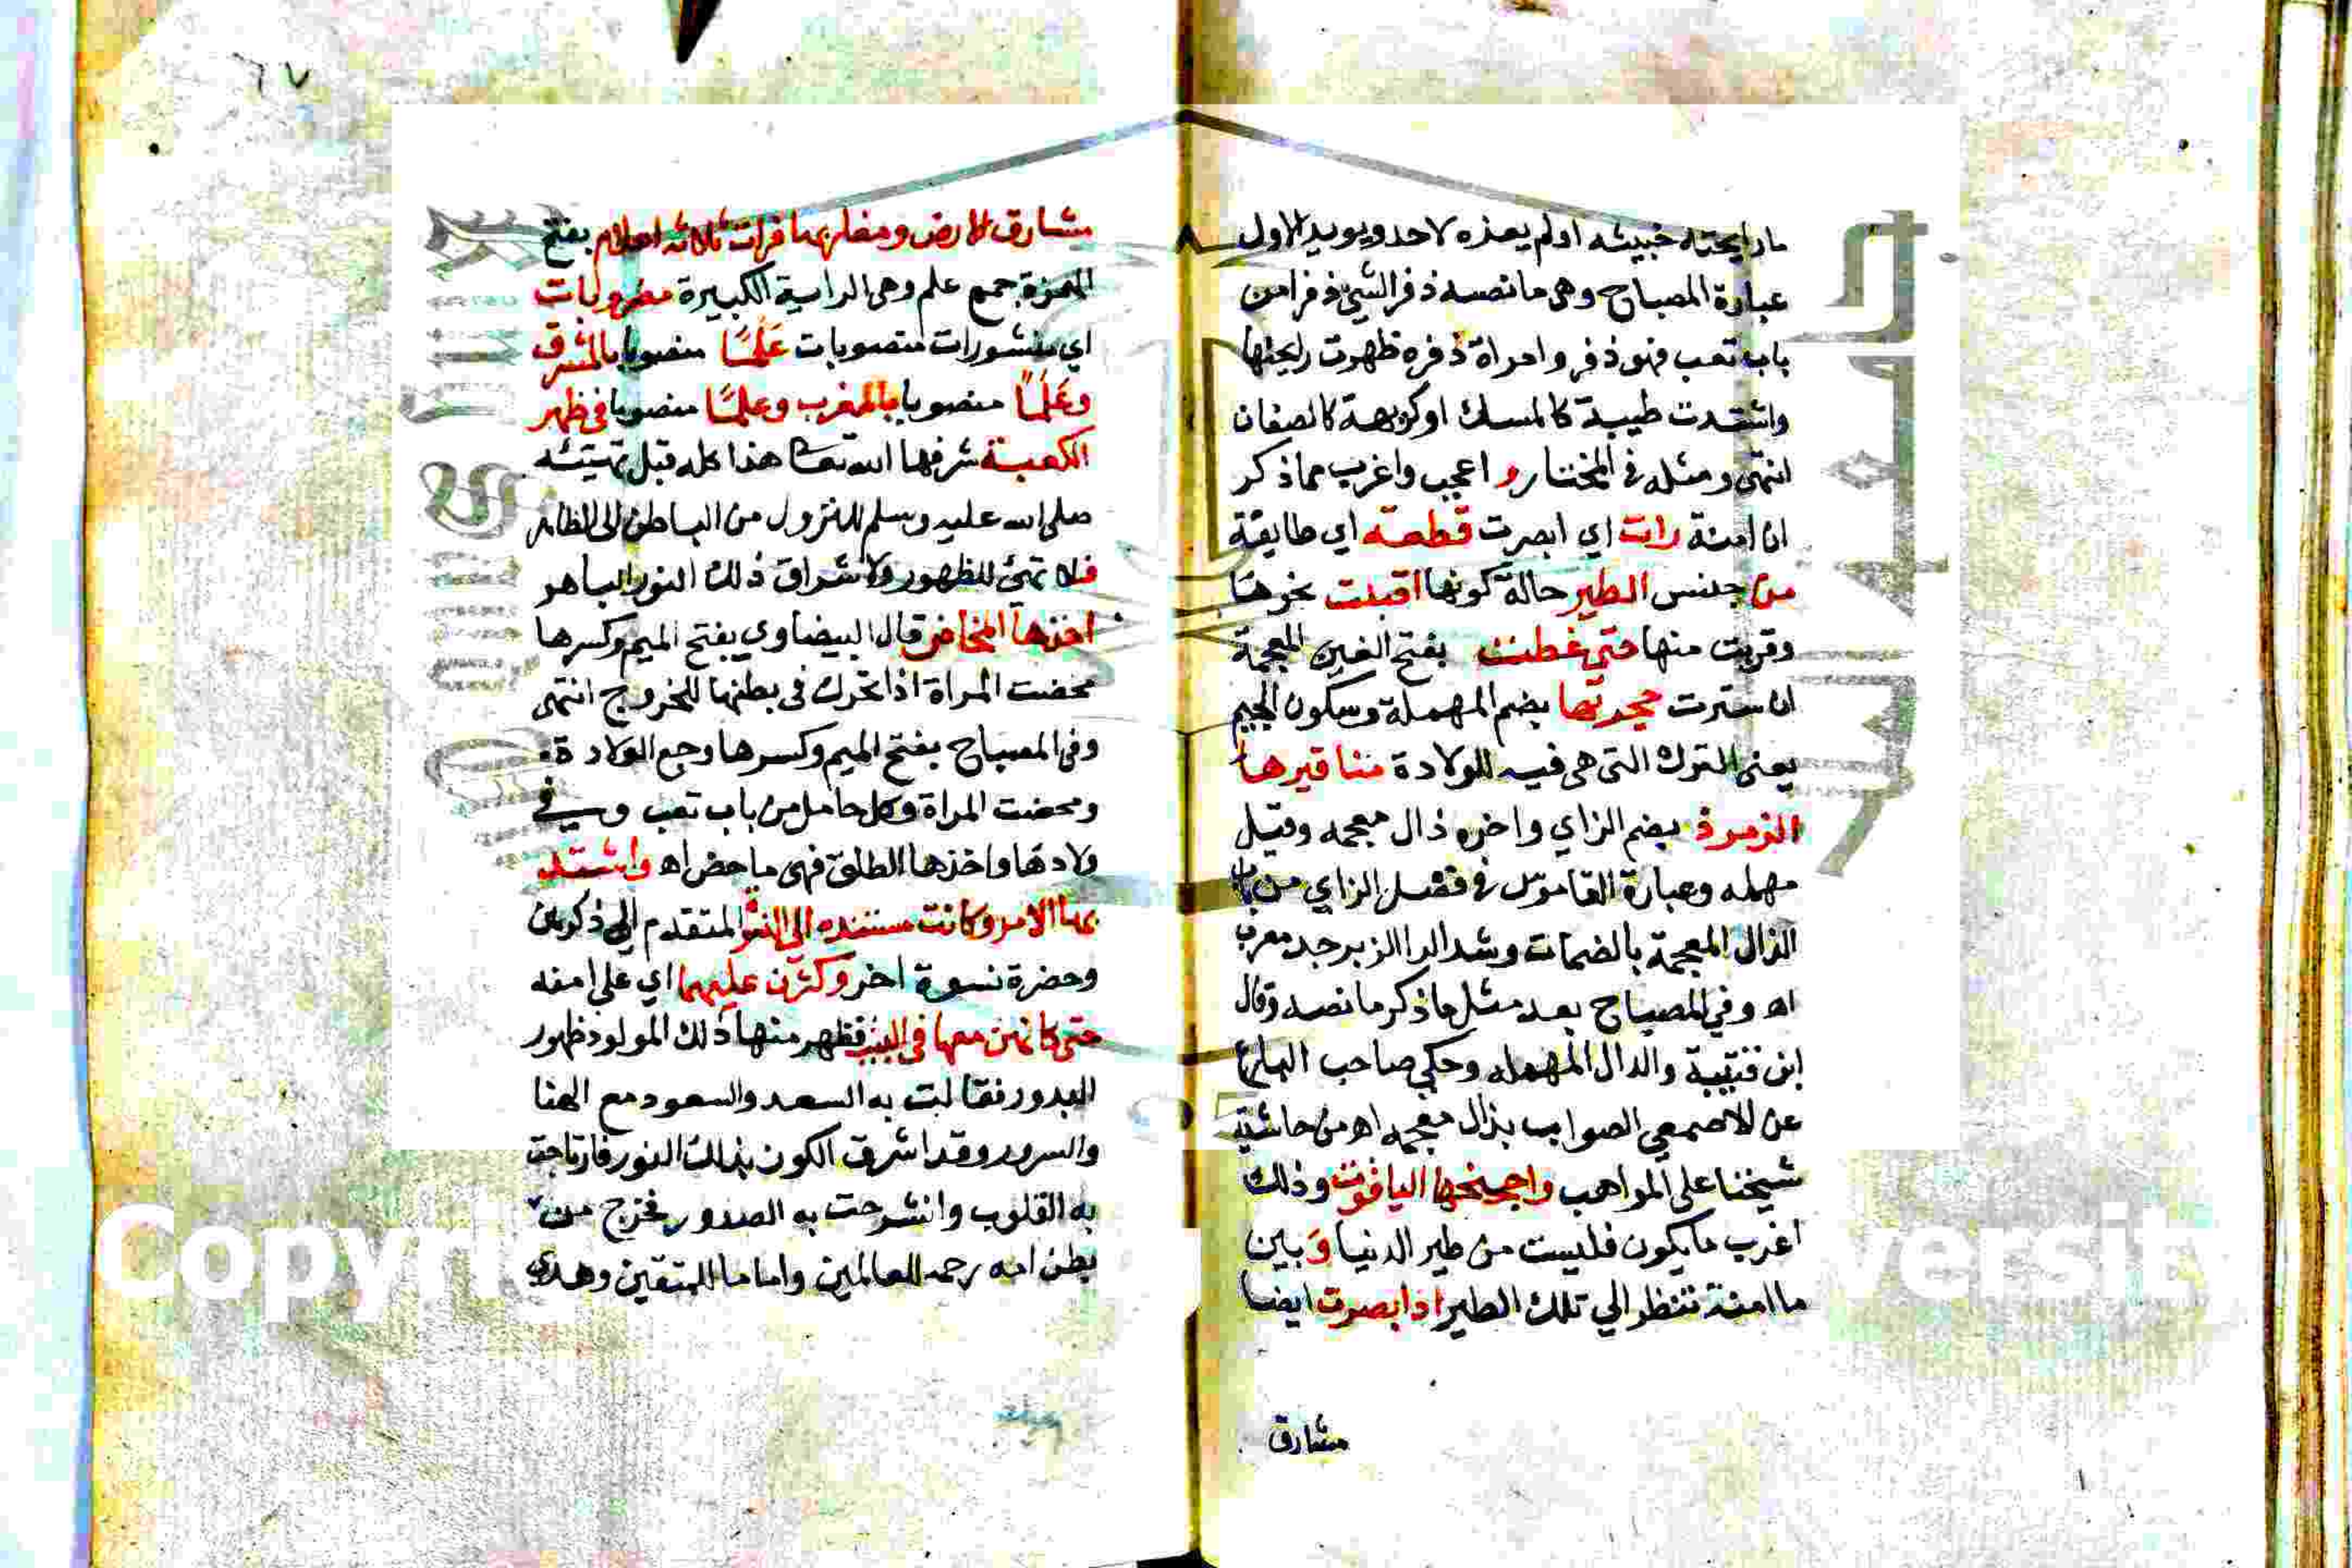 مارايحته خبيثه اولم يعذه لاحد ويويد الاول
عبارة المصباح وهى مانصه ذفر الشئ ذفرا من
باب تعب فهو ذفر وامراة ذفره ظهرت ريحتها
واشتدت طيبة كالمسك اوكريهة كالصنان
انتهى ومثله فى المختار و اعجب واغرب مما ذكر
ان امنة رات اي ابصرت قطعة اي طايفة
من جنس الطير حالة كونها اقبلت نحوها
وقربت منها حتى غطت بفتح الغين المعجمة
ان سترت حجرتها بضم المهملة وسكون الجيم
يعنى التى هى فيه للولادة مناقيرها
الزمرذ بضم الزاي واخره ذال معجمه وقيل
مهمله وعبارة القاموس فى فصل الزاي من باب
الذال المعجمة بالضمات وشد الرا الزبرجد معرب
اه وفي المصباح بعد مثل ما ذكر مانصه وقال
ابن قتيبة والدال المهمله وحكي صاحب
عن الاصمعي الصواب بذال معجمه اه من حاشية
شيخنا على المواهب واجنحتها الياقوت وذلك
اغرب مايكون فليست من طير الدنيا و بين
ما امنة تنتظر الي تلك الطير اذ ابصرت ايضا
مشارق
٦٧
مشارق الارض ومغاربها فرات ثلاثه اعلام بفتح
الهمزة جمع علم وهى الراية الكبيرة مضروبات
اي منشورات منصوبات عَلَمًا منصوبا بالمشرق
وعَلَمًا منصوبا بالمغرب وعلمًا منصوبا فى ظهر
الكعبة شرفها الله تعا هذا كله قبل تهيئه
صلى الله عليه وسلم للنزول من الباطن الى الظاهر
فلما تهئ للظهور ولاشراق ذلك النور الباهر
اخذها المخاض قال البيضاوي بفتح الميم وكسرها
مخضت المراة اذا تحرك فى بطنها للخروج انتهى
وفى المصباح بفتح الميم وكسرها وجع الولادة
ومخضت المراة وكل حامل من باب تعب
ولادها واخذها الطلق فهى ماخض اه واشتد
بها الامر وكانت مستنده الى المتقدم ذكرهن
وحضرة نسوة اخر وكثرن عليها اي على امنه
حتى كانهن معها فى البيت فظهر منها ذلك المولود ظهور
البدور فقالت به السعد والسعود مع الهنا
والسرور وقد اشرق الكون بذلك النور فارتاحت
به القلوب وانشرحت به الصدور فخرج من
بطن امه رحمة للعالمين واماما للمتقين وهدى
Copyri
versit